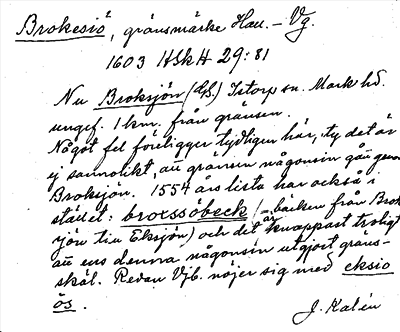 Brokesiö, gränsmärke Hall. – Vg.
1603 HSkH 29: 81
Nu Broksjön (GS.) Istorp sn. Mark hd.
ungef. 1 km. från gränsen.
Något fel föreligger tydligen här, ty det är
ej sannolikt, att gränsen någonsin gått genom
Broksjön. 1554 års lista har också i
stället: brocssöbeck (= bäcken från Brok-
sjön till Eksjön) och det är knappast troligt
att ens denna någonsin utgjort gräns-
skäl. Redan Vjb. nöjer sig med eksio
ös.
J. Kalén